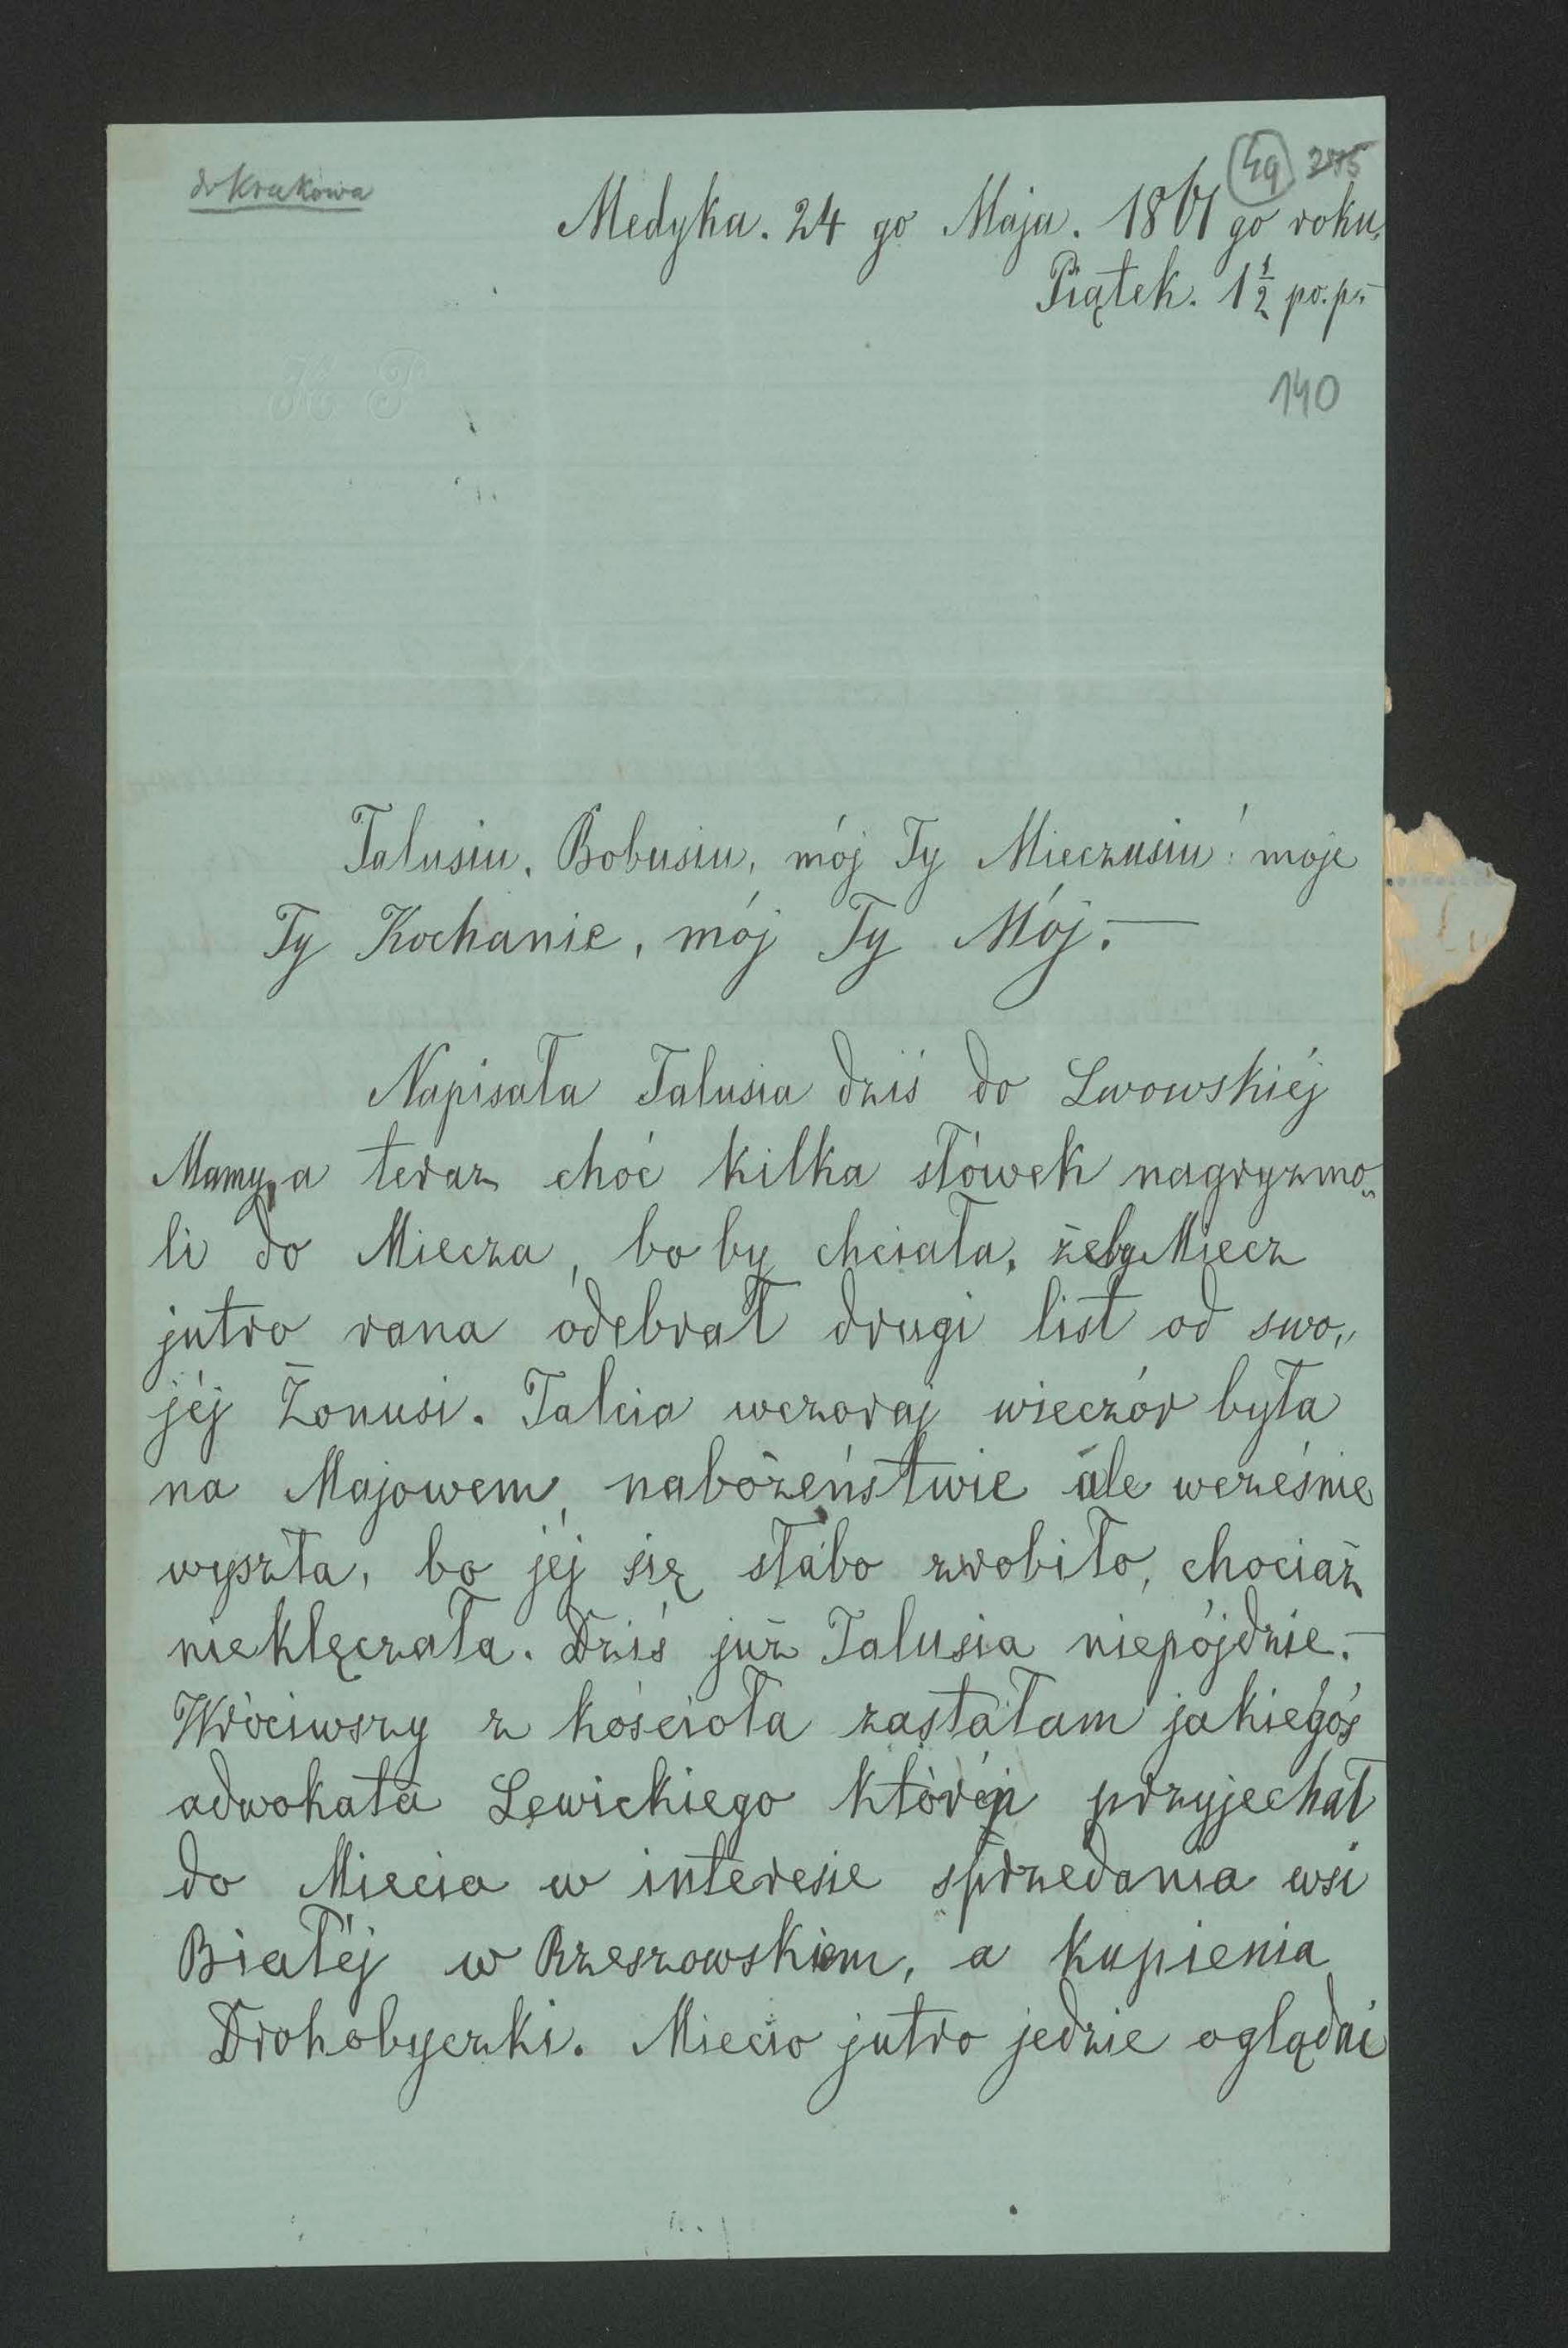 do Krakowa
49 2875
Medyka. 24 go Maja. 1861 go roku.
Piątek. 1 1/2 po.p.-
K P
140
Talusiu, Bobusiu, mój Ty Mieczusiu! moje
Ty Kochanie, mój Ty Mój.—
Napisała Talusia dziś do Lwowskiéj
Mamy, a teraz choć kilka słówek nagryzmo„
li do Miecza, bo by chciała, żeby Miecz
jutro rana odebrał drugi list od swo„
jéj Żonusi. Talcia wczoraj wieczór była
na Majowem nabożeństwie ale wcześnie
wyszła, bo jéj się słabo zrobiło, chociaż
nieklęczała. Dziś już Talusia niepójdzie.—
Wróciwszy z kościoła zastałam jakiegoś
adwokata Lewickiego który przyjechał
do Miecia w interesie sprzedania wsi
Białéj w Rzeszowskiem, a kupienia
Drohobyczki. Miecio jutro jedzie oglądni